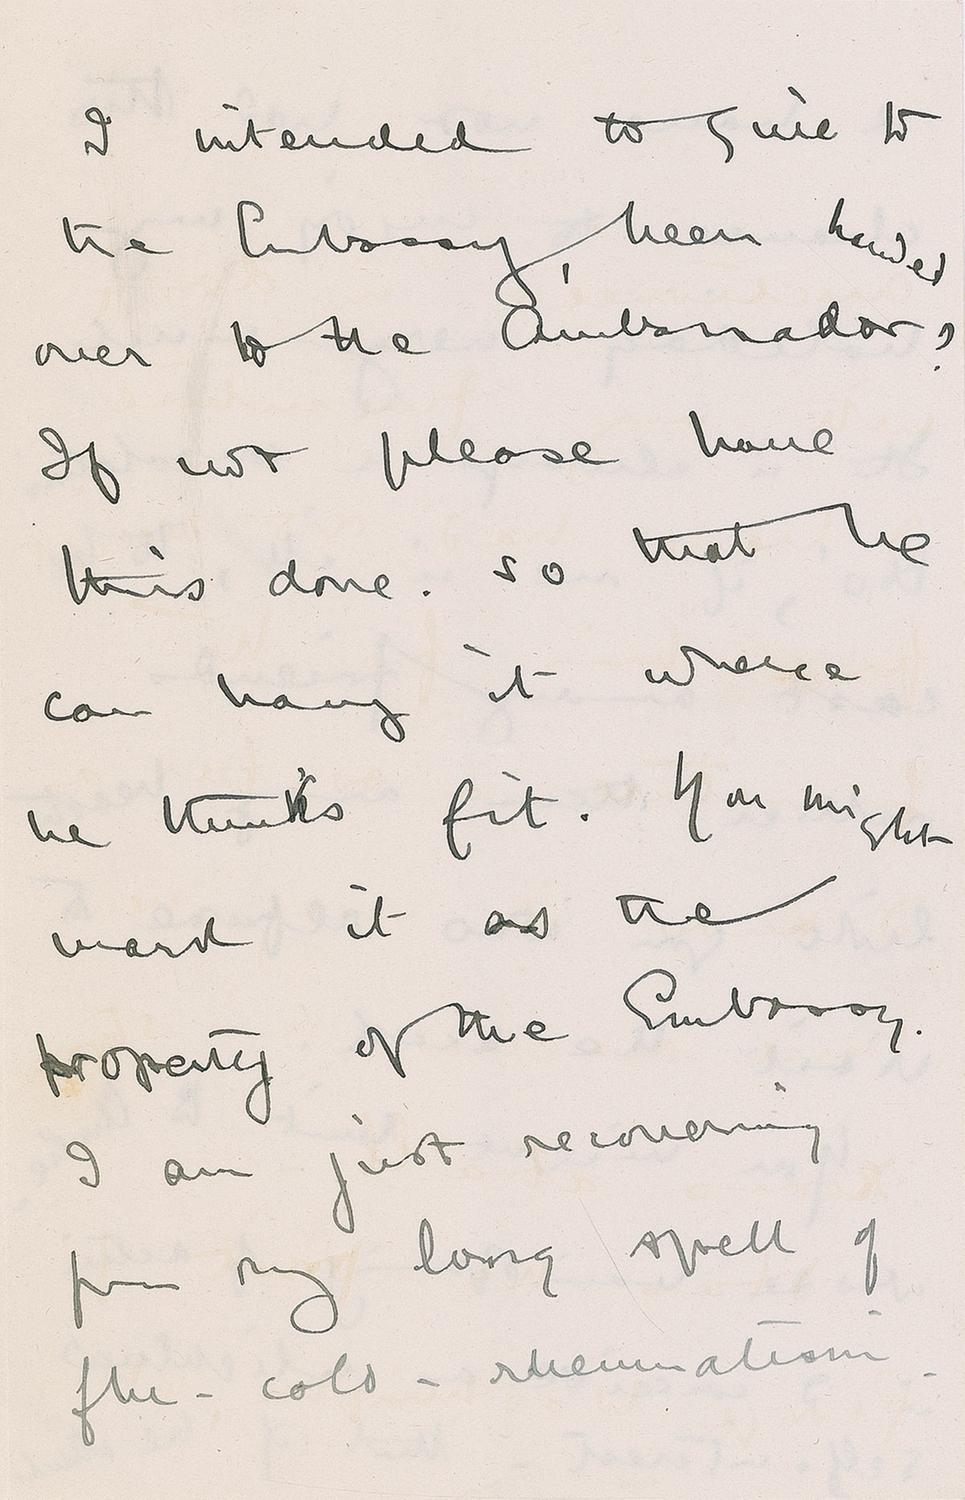 I intended to give to
the Embassy, been handed
over to the Ambassador?
If not please have
this done. so that he
can hang it where
he thinks fit. You might
mark it as the
property of the Embassy.
I am just recovering
from my long spell of
flu - cold - rheumatism -